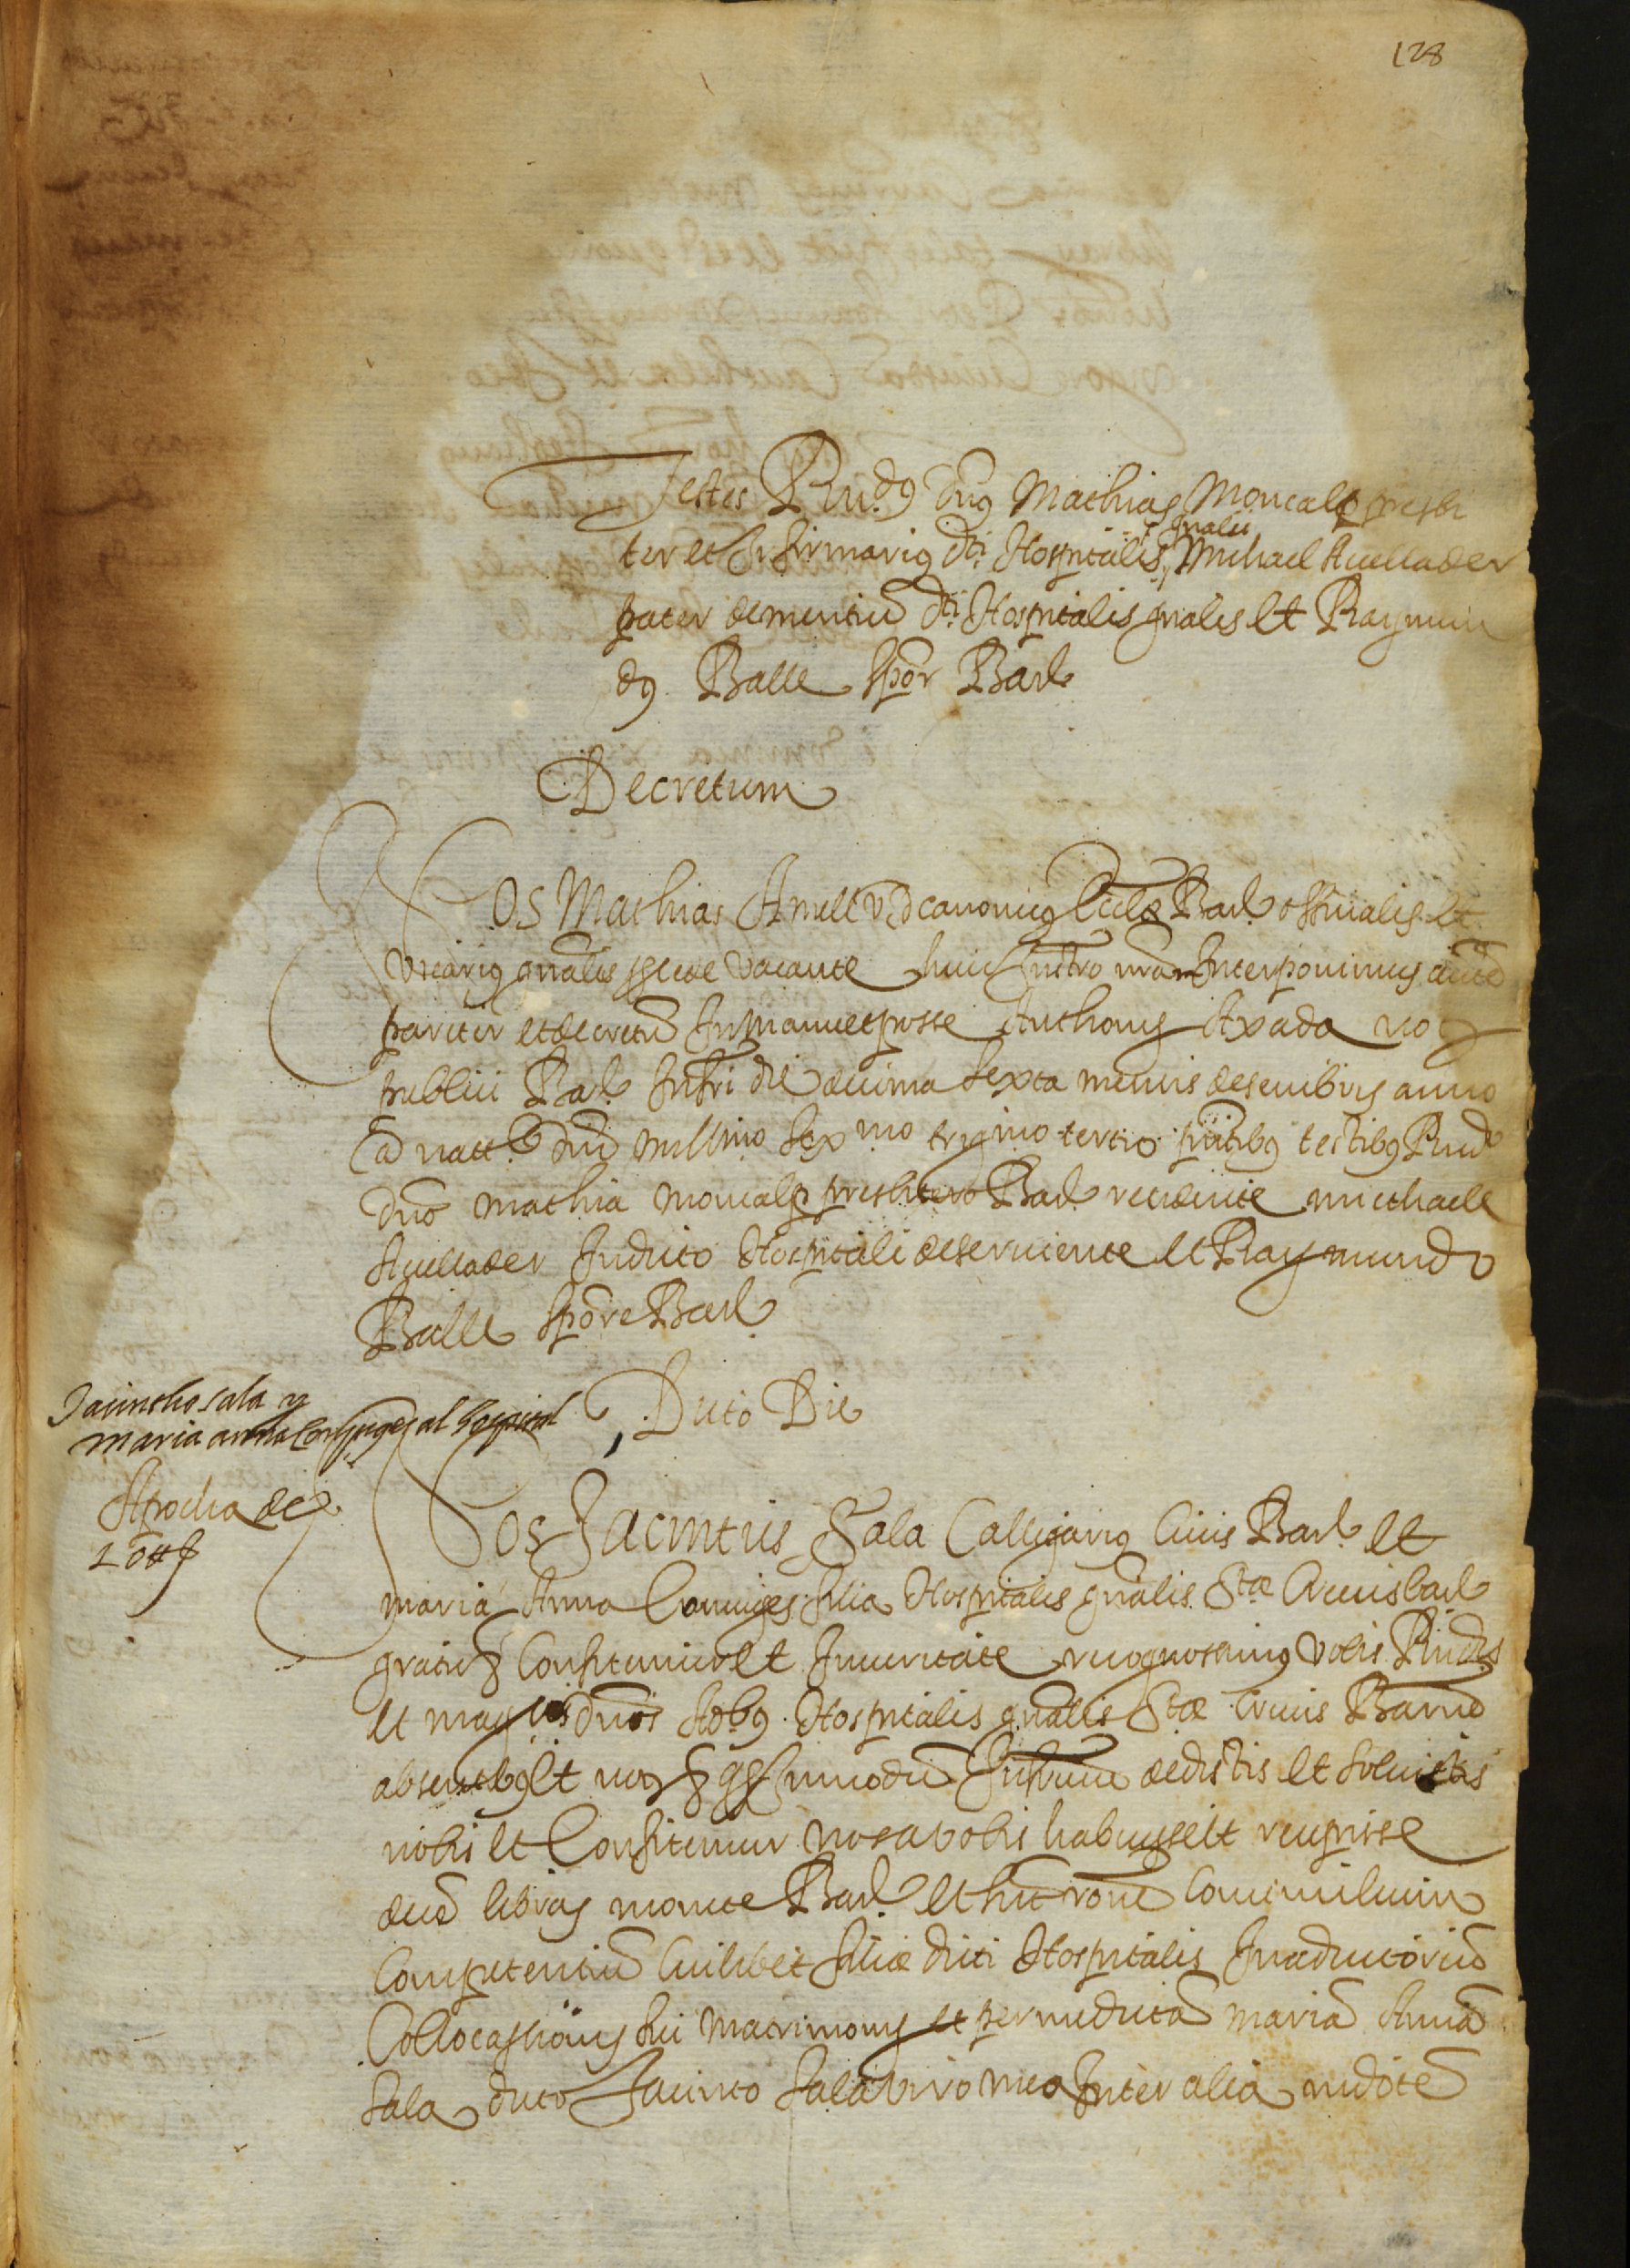 128
Testes Rnd.⁹ dns Mathias Moncalp presbi
ter et Infirmari⁹ dti Hospitalis gnalis Michael Avellader
pater dementiu dti Hospitalis gnalis et Raymun
d⁹ Balle Scpor Barle
Decretum
Nos Mathias Amell v. d canonic⁹ Eccle Barl. officialis et
vicari⁹ gnalis sede vacante huic Instro nram Interponimus aucte
pariter et decretu In manu et posse Anthony Axada not
publici Barl Infri die decima sexta mensis desembris anno
a natt.e Dni millmo sexmo trigmo tertio pntib⁹ testib⁹ Rnd
dno Mathia Moncalp presbitero Barl residente Michaele
Avellader In dicto Hospitali deserviente et Raymundo
Balle Scpore Barl
Jacintho sala y
maria anna conjuges al hospital
Dicto Die
Apocha de
10 ℔
Nos Jacintus Sala Calligari⁹ Civis Barl. et
maria Anna Coniuges filia Hospitalis gnalis Stæ Crucis barl
gratis & Confitemur et In veritate recognoscimus vobis Rndis
et magcis dnis Adb⁹ Hospitalis gnallis Stæ Crucis Barne
absentib⁹ et not & q modu Infrum dedistis et solvistis
nobis et Confitemur nos a vobis habuisse et recepisse
decem libras monete Barl. et hut rone
Competentiu Cuilibet filiæ dicti Hospitalis In adiutoriu
Collocationis sui Matrimony et per me dicta maria Anna
Sala dicto Jacinto Sala viro meo Inter alia in dote